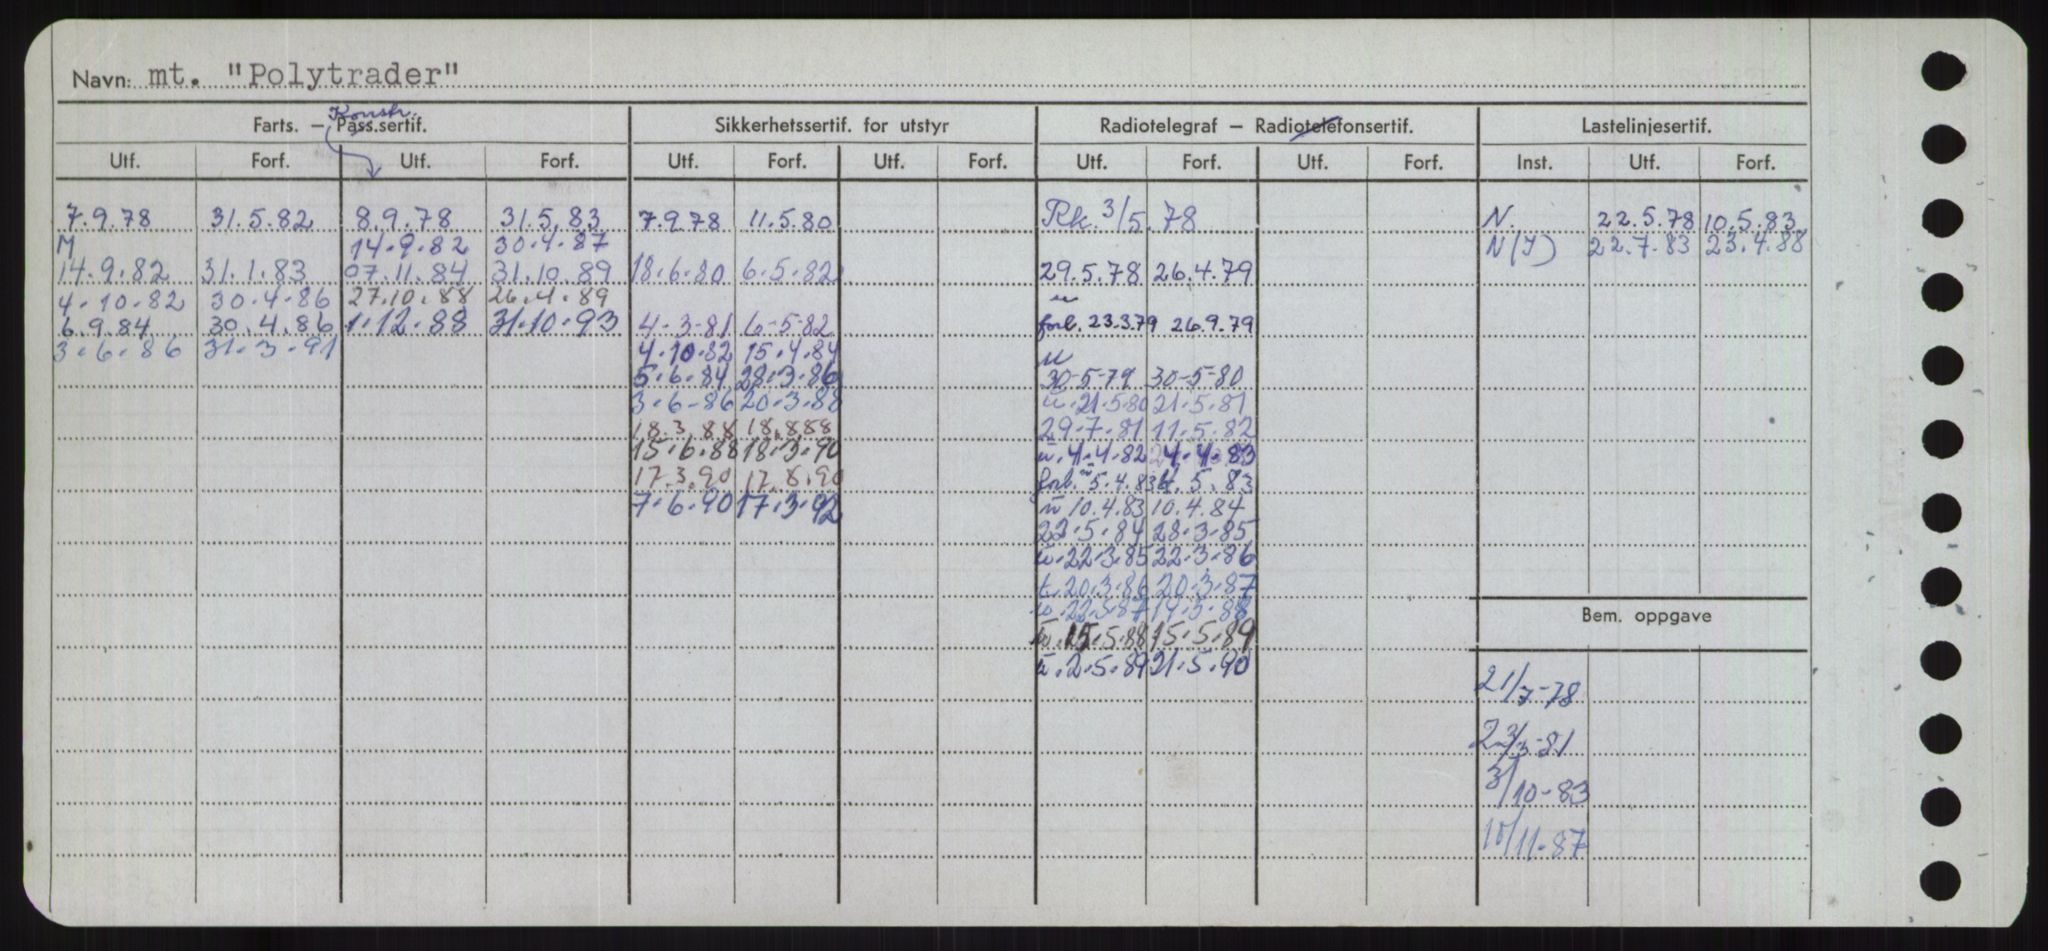 Navn: mt. "Polytrader"
Konstr.
Farts. – Pass.sertif. Sikkerhetssertif. for utstyr Radiotelegraf – Radiotelefonsertif. Lastelinjesertif.
Utf. Forf. Utf. Forf. Utf. Forf. Utf. Forf. Utf. Forf. Utf. Forf. Inst. Utf. Forf.
7.9.78 31.5.82 8.9.78 31.5.83 7.9.78 11.5.80 Rk. 3/5.78 N. 22.5.78 10.5.83
M 14.9.82 30.4.87 N(I) 22.7.83 23.4.88
14.9.82 31.1.83 07.11.84 31.10.89 18.6.80 6.5.82 29.5.78 26.4.79
4.10.82 30.4.86 27.10.88 26.4.89
6.9.84 30.4.86 1.12.88 31.10.93 4-3-81 6-5-82 forl. 23.3.79 26.9.79
3.6.86 31.3.91 4.10.82 15.4.84
5.6.84 28.3.86 30-5-79 30-5-80
3.6.86 20.3.88 21.5.80 21.5.81
18.3.88 18.888 29.7.81 11.5.82
15.6.88 18.3.90 4.4.82 24.4.83
17.3.90 17.8.90 forl. 5.4.83 5.83
7.6.90 17.3.92 10.4.83 10.4.84
22.5.84 28.3.85
22.3.85 22.3.86
t. 20.3.86 20.3.87
22.3.87 19.3.88
Bem. oppgave
15.5.88 15.5.89
2.5.89 21.5.90
21/7-78
23/3-81
3/10-83
10/11-87